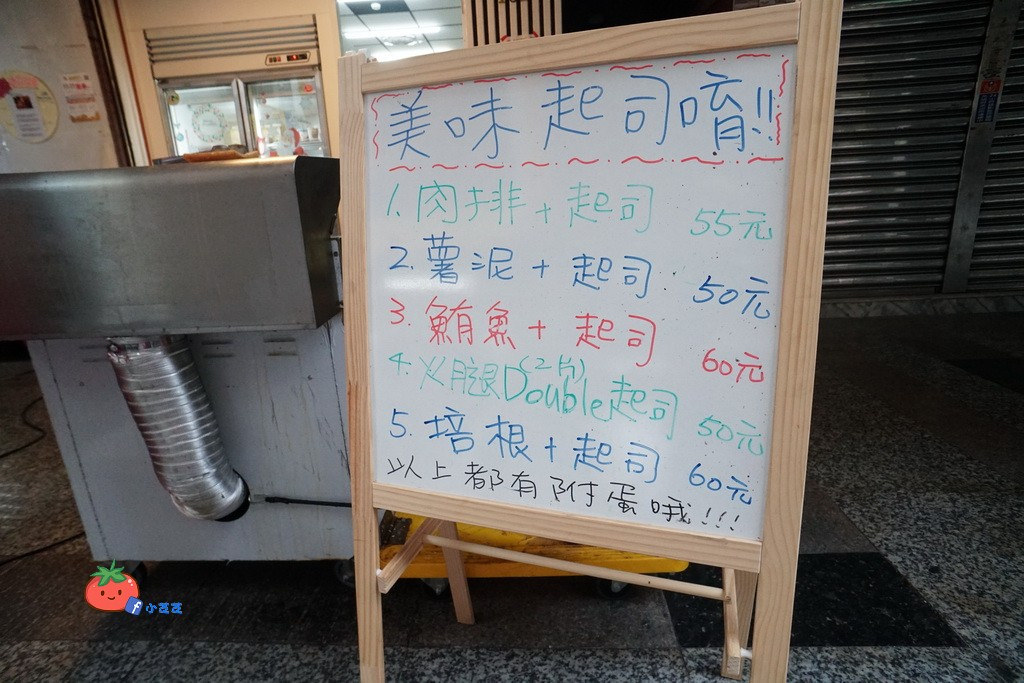 美味起司唷!!
1. 肉排+起司 55元
2. 薯泥+起司 50元
3. 鮪魚+起司 60元
4. 火腿Double(2片)起司 50元
5. 培根+起司 60元
以上都有附蛋哦!!!
f 小芝芝